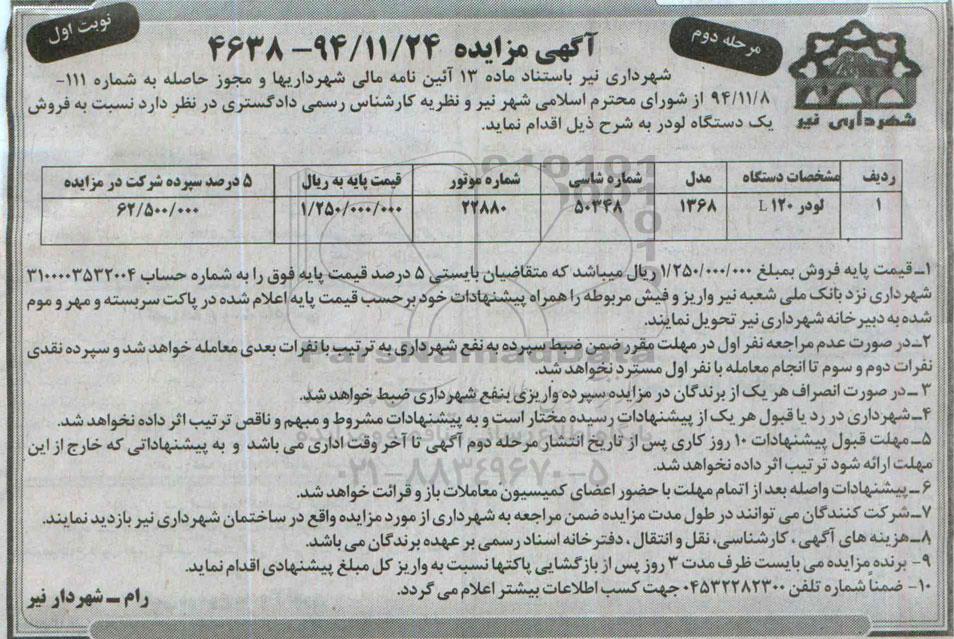 نوبت اول
مرحله دوم
آگهی مزایده ۹۴/۱۱/۲۴- ۴۶۳۸
شهرداری نیر
شهرداری نیر باستناد ماده ۱۳ آئین نامه مالی شهرداریها و مجوز حاصله به شماره ۱۱۱-
۹۴/۱۱/۸ از شورای محترم اسلامی شهر نیر و نظریه کارشناس رسمی دادگستری در نظر دارد نسبت به فروش
یک دستگاه لودر به شرح ذیل اقدام نماید.
ردیف مشخصات دستگاه مدل شماره شاسی شماره موتور قیمت پایه به ریال ۵ درصد سپرده شرکت در مزایده
۱ لودر L ۱۲۰ ۱۳۶۸ ۵۰۳۴۸ ۲۲۸۸۰ ۱/۲۵۰/۰۰۰/۰۰۰ ۶۲/۵۰۰/۰۰۰
۱ـ قیمت پایه فروش بمبلغ ۱/۲۵۰/۰۰۰/۰۰۰ ریال میباشد که متقاضیان بایستی ۵ درصد قیمت پایه فوق را به شماره حساب ۳۱۰۰۰۰۳۵۳۲۰۰۴
شهرداری نزد بانک ملی شعبه نیر واریز و فیش مربوطه را همراه پیشنهادات خود برحسب قیمت پایه اعلام شده در پاکت سربسته و مهر و موم
شده به دبیرخانه شهرداری نیر تحویل نمایند.
۲ـ در صورت عدم مراجعه نفر اول در مهلت مقرر ضمن ضبط سپرده به نفع شهرداری به ترتیب با نفرات بعدی معامله خواهد شد و سپرده نقدی
نفرات دوم و سوم تا انجام معامله با نفر اول مسترد نخواهد شد.
۳ ـ در صورت انصراف هر یک از برندگان در مزایده سپرده واریزی بنفع شهرداری ضبط خواهد شد.
۴ـ شهرداری در رد یا قبول هر یک از پیشنهادات رسیده مختار است و به پیشنهادات مشروط و مبهم و ناقص ترتیب اثر داده نخواهد شد.
۵ـ مهلت قبول پیشنهادات ۱۰ روز کاری پس از تاریخ انتشار مرحله دوم آگهی تا آخر وقت اداری می باشد و به پیشنهاداتی که خارج از این
مهلت ارائه شود ترتیب اثر داده نخواهد شد.
۶ ـ پیشنهادات واصله بعد از اتمام مهلت با حضور اعضای کمیسیون معاملات باز و قرائت خواهد شد.
۷ـ شرکت کنندگان می توانند در طول مدت مزایده ضمن مراجعه به شهرداری از مورد مزایده واقع در ساختمان شهرداری نیر بازدید نمایند.
۸ـ هزینه های آگهی ، کارشناسی، نقل و انتقال ، دفترخانه اسناد رسمی بر عهده برندگان می باشد.
۹- برنده مزایده می بایست ظرف مدت ۳ روز پس از بازگشایی پاکتها نسبت به واریز کل مبلغ پیشنهادی اقدام نماید.
۱۰- ضمناً شماره تلفن ۰۴۵۳۲۲۸۲۳۰۰ جهت کسب اطلاعات بیشتر اعلام می گردد.
رام ـ شهردار نیر
ParsNamadData
۰۲۱-۸۸۳۴۹۶۷۰-۵